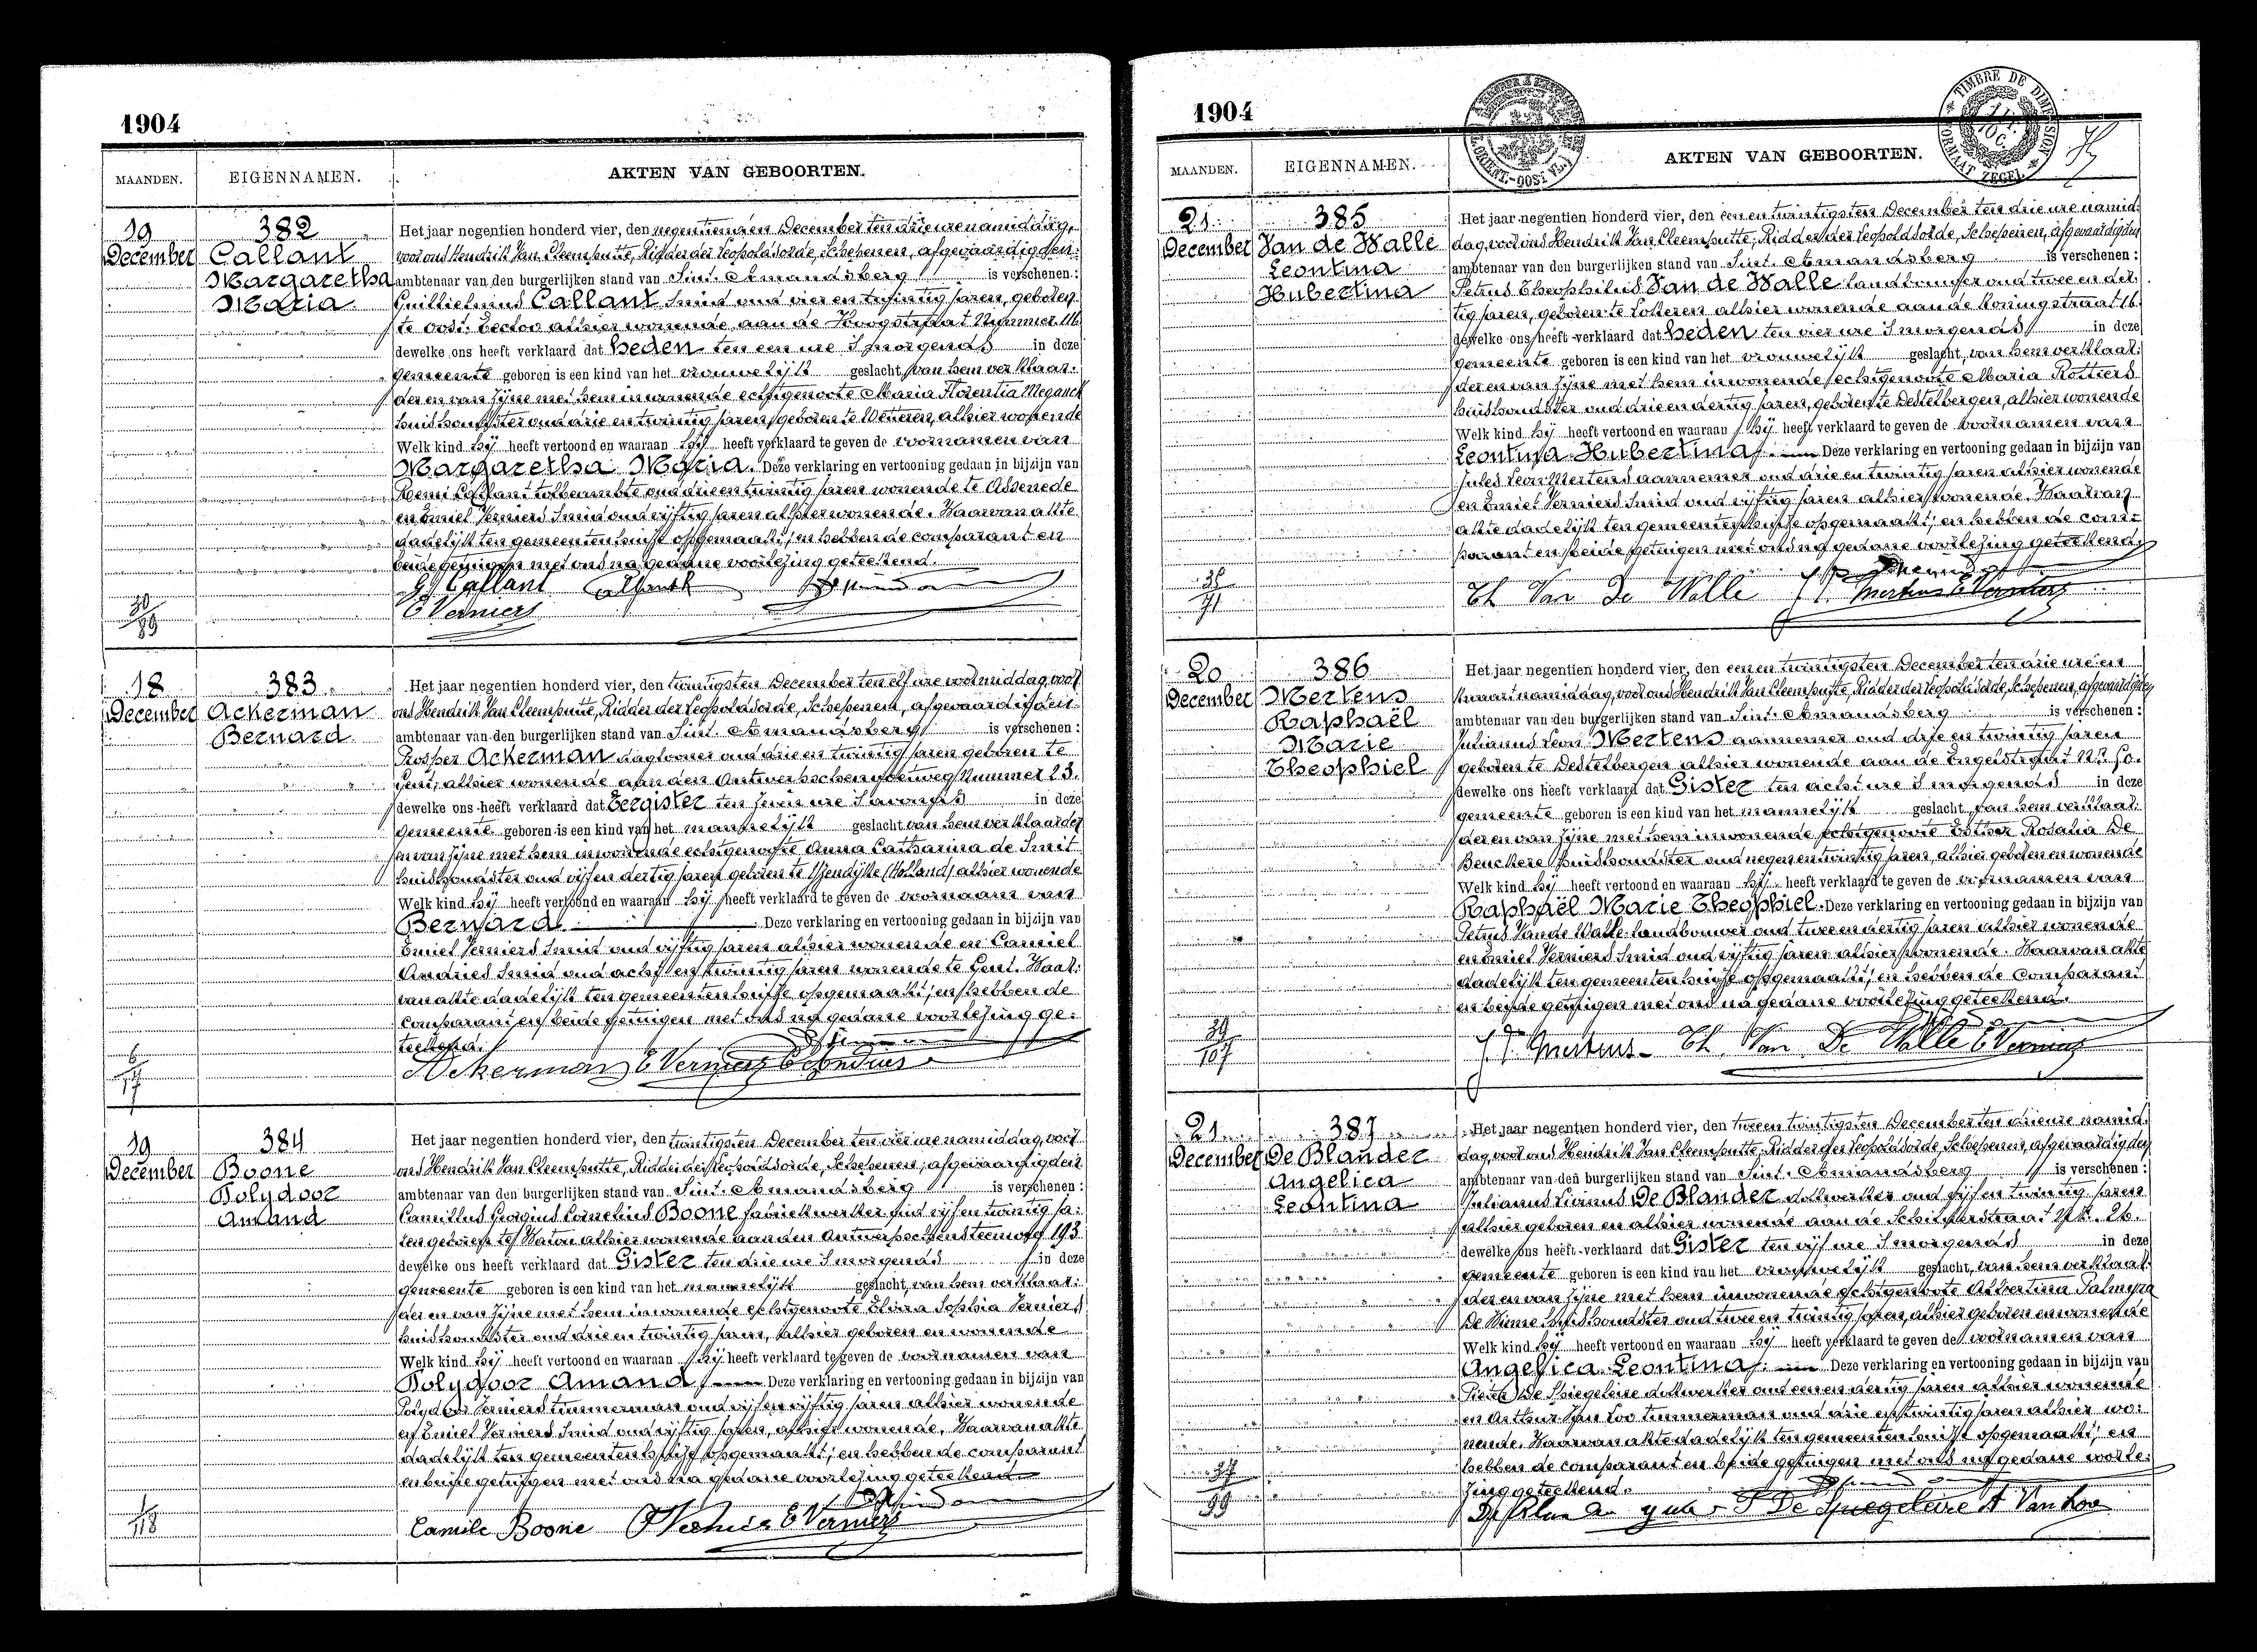 1904
MAANDEN.
EIGENNAMEN.
AKTEN VAN GEBOORTEN.
19
December
382
Callant
Margaretha
Maria
Het jaar negentien honderd vier, den negentienden December ten drie uren namiddag,
voor ons Hendrik Van Cleemputte, Ridder der Leopoldsorde, Schepenen, afgevaardigden
ambtenaar van den burgerlijken stand van Sint-Amandsberg is verschenen:
Guillielmus Callant smid oud vier en twintig jaren, geboren
te Oost-Eecloo alhier wonende aan de Hoogstraat Nummer 116
dewelke ons heeft verklaard dat heden ten een ure 's morgends in deze
gemeente geboren is een kind van het vrouwelijk geslacht, van hem verklaar-
der en van zijne met hem inwonende echtgenoote Maria Florentia Meganck
huishoudster oud drie en twintig jaren, geboren te Wetteren, alhier wonende
Welk kind hij heeft vertoond en waaraan hij heeft verklaard te geven de voornamen van
Margaretha Maria. Deze verklaring en vertooning gedaan in bijzijn van
Remi Callant tolbeambte oud drie en twintig jaren wonende te Assenede
en Emiel Verniers smid oud vijftig jaren alhier wonende. Waarvan akte
dadelijk ten gemeentenhuize opgemaakt, en hebben de comparant en
beide getuigen met ons na gedane voorlezing geteekend.
G Callant
E Verniers
18
December
383
Ackerman
Bernard
Het jaar negentien honderd vier, den twintigsten December ten elf ure voormiddag, voor
ons Hendrik Van Cleemputte, Ridder der Leopoldsorde, Schepenen, afgevaardigden
ambtenaar van den burgerlijken stand van Sint-Amandsberg is verschenen:
Prosper Ackerman daglooner oud drie en twintig jaren geboren te
Gent, alhier wonende aan den Antwerpschensteenweg Nummer 23.
dewelke ons heeft verklaard dat Eergister ten zeven ure 's avonds in deze
gemeente geboren is een kind van het mannelijk geslacht van hem verklaarder
en van zijne met hem inwonende echtgenoote Anna Catharina de Smit
huishoudster oud vijf en dertig jaren geboren te IJzendijke (Holland) alhier wonende
Welk kind hij heeft vertoond en waaraan hij heeft verklaard te geven de voornaam van
Bernard. Deze verklaring en vertooning gedaan in bijzijn van
Emiel Verniers smid oud vijftig jaren alhier wonende en Camiel
Andries smid oud acht en twintig jaren wonende te Gent. Waar-
van akte dadelijk ten gemeentenhuize opgemaakt, en hebben de
comparant en beide getuigen met ons na gedane voorlezing ge-
teekend.
Ackerman E Verniers C Andries
19
December
384
Boone
Polydoor
Amand
Het jaar negentien honderd vier, den twintigsten December ten vier ure namiddag, voor
ons Hendrik Van Cleemputte, Ridder der Leopoldsorde, Schepenen, afgevaardigden
ambtenaar van den burgerlijken stand van Sint-Amandsberg is verschenen:
Camillus Georgius Cornelius Boone fabriekwerker oud vijf en twintig ja-
ren geboren te Watou alhier wonende aan den Antwerpschensteenweg 193
dewelke ons heeft verklaard dat Gister ten drie ure 's morgends in deze
gemeente geboren is een kind van het mannelijk geslacht, van hem verklaar-
der en van zijne met hem inwonende echtgenoote Elvira Sophia Verniers
huishoudster oud drie en twintig jaren, alhier geboren en wonende
Welk kind hij heeft vertoond en waaraan hij heeft verklaard te geven de voornamen van
Polydoor Amand, Deze verklaring en vertooning gedaan in bijzijn van
Polydoor Verniers timmerman oud vijf en vijftig jaren alhier wonende
en Emiel Verniers smid oud vijftig jaren, alhier wonende. Waarvan akte
dadelijk ten gemeentenhuize opgemaakt, en hebben de comparant
en beide getuigen met ons na gedane voorlezing geteekend
Camile Boone P Verniers E Verniers
1904
TIMBRE DE DIMENSION
FORMAAT ZEGEL
MAANDEN.
EIGENNAMEN.
AKTEN VAN GEBOORTEN.
21
December
385
Van de Walle
Leontina
Hubertina
Het jaar negentien honderd vier, den een en twintigsten December ten drie ure namid-
dag, voor ons Hendrik Van Cleemputte, Ridder der Leopoldsorde, Schepenen, afgevaardigden
ambtenaar van den burgerlijken stand van Sint-Amandsberg is verschenen:
Petrus Theophilus Van de Walle landbouwer oud twee en der-
tig jaren, geboren te Lokeren alhier wonende aan de Koningstraat 16.
dewelke ons heeft verklaard dat heden ten vier ure 's morgends in deze
gemeente geboren is een kind van het vrouwelijk geslacht, van hem verklaar-
der en van zijne met hem inwonende echtgenoote Maria Rottiers
huishoudster oud drie en dertig jaren, geboren te Destelbergen, alhier wonende
Welk kind hij heeft vertoond en waaraan hij heeft verklaard te geven de voornamen van
Leontina Hubertina, Deze verklaring en vertooning gedaan in bijzijn van
Jules Leon Mertens aannemer oud drie en twintig jaren alhier wonende
en Emiel Verniers smid oud vijftig jaren alhier wonende. Waarvan
akte dadelijk ten gemeentenhuize opgemaakt, en hebben de com-
parant en beide getuigen met ons na gedane voorlezing geteekend.
Th Van De Walle J L Mertens E Verniers
20
December
386
Mertens
Raphaël
Marie
Theophiel
Het jaar negentien honderd vier, den een en twintigsten December ten drie ure en
kwart namiddag, voor ons Hendrik Van Cleemputte, Ridder der Leopoldsorde, Schepenen, afgevaardigden
ambtenaar van den burgerlijken stand van Sint-Amandsberg is verschenen:
Julianus Leon Mertens aannemer oud drie en twintig jaren
geboren te Destelbergen alhier wonende aan de Engelstraat Nr 50.
dewelke ons heeft verklaard dat Gister ten acht ure 's morgends in deze
gemeente geboren is een kind van het mannelijk geslacht, van hem verklaar-
der en van zijne met hem inwonende echtgenoote Esther Rosalia De
Beuckere huishoudster oud negen en twintig jaren, alhier geboren en wonende
Welk kind hij heeft vertoond en waaraan hij heeft verklaard te geven de voornamen van
Raphaël Marie Theophiel. Deze verklaring en vertooning gedaan in bijzijn van
Petrus Van de Walle landbouwer oud twee en dertig jaren alhier wonende
en Emiel Verniers smid oud vijftig jaren alhier wonende. Waarvan akte
dadelijk ten gemeentenhuize opgemaakt, en hebben de comparant
en beide getuigen met ons na gedane voorlezing geteekend.
J L Mertens Th Van De Walle E Verniers
21
December
387
De Blander
Angelica
Leontina
Het jaar negentien honderd vier, den twee en twintigsten December ten drie ure namid-
dag voor ons Hendrik Van Cleemputte, Ridder der Leopoldsorde, Schepenen, afgevaardigden
ambtenaar van den burgerlijken stand van Sint-Amandsberg is verschenen:
Julianus Livinus De Blander dokwerker oud vijf en twintig jaren
alhier geboren en alhier wonende aan de Schilderstraat Nr. 26.
dewelke ons heeft verklaard dat Gister ten vijf ure 's morgends in deze
gemeente geboren is een kind van het vrouwelijk geslacht, van hem verklaar-
der en van zijne met hem inwonende echtgenoote Albertina Palmyra
De Winne huishoudster oud twee en twintig jaren, alhier geboren en wonende
Welk kind hij heeft vertoond en waaraan hij heeft verklaard te geven de voornamen van
Angelica Leontina, Deze verklaring en vertooning gedaan in bijzijn van
De Spiegeleire dokwerker oud een en dertig jaren alhier wonende
en Arthur Van Loo timmerman oud drie en twintig jaren alhier wo-
nende. Waarvan akte dadelijk ten gemeentenhuize opgemaakt, en
hebben de comparant en beide getuigen met ons na gedane voorle-
zing geteekend.
De Spiegeleire A Van Loo